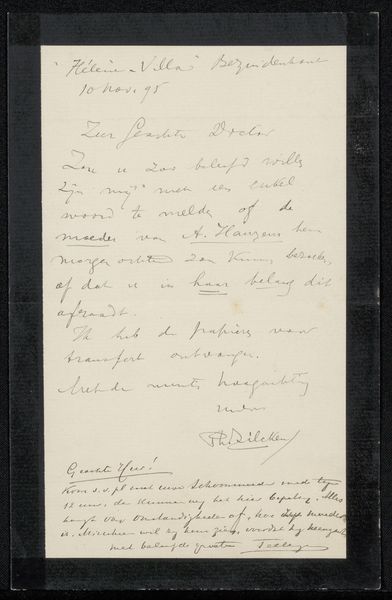 "Hélène-Villa" Bezuidenhout
10 Nov. 95
Zeer Geachte Doctor
Zou u zoo beleefd willen
zijn mij met een enkel
woord te melden of de
moeder van A. Hauzens hem
morgen ochtend zou kunnen bezoeken,
of dat u in haar belang dit
afraadt.
Ik heb de papieren voor
transport ontvangen.
Met de meeste hoogachting
Ph Zilcken
Geachte Heer!
Kom s.v.pl met uwe Schoonmoeder mede tegen
12 uur, dan kunnen wij het hier bepalen. Alles
hangt van omstandigheden af, hoe
is. Misschien wil hij haar zien, voordat hij
met beleefde groeten